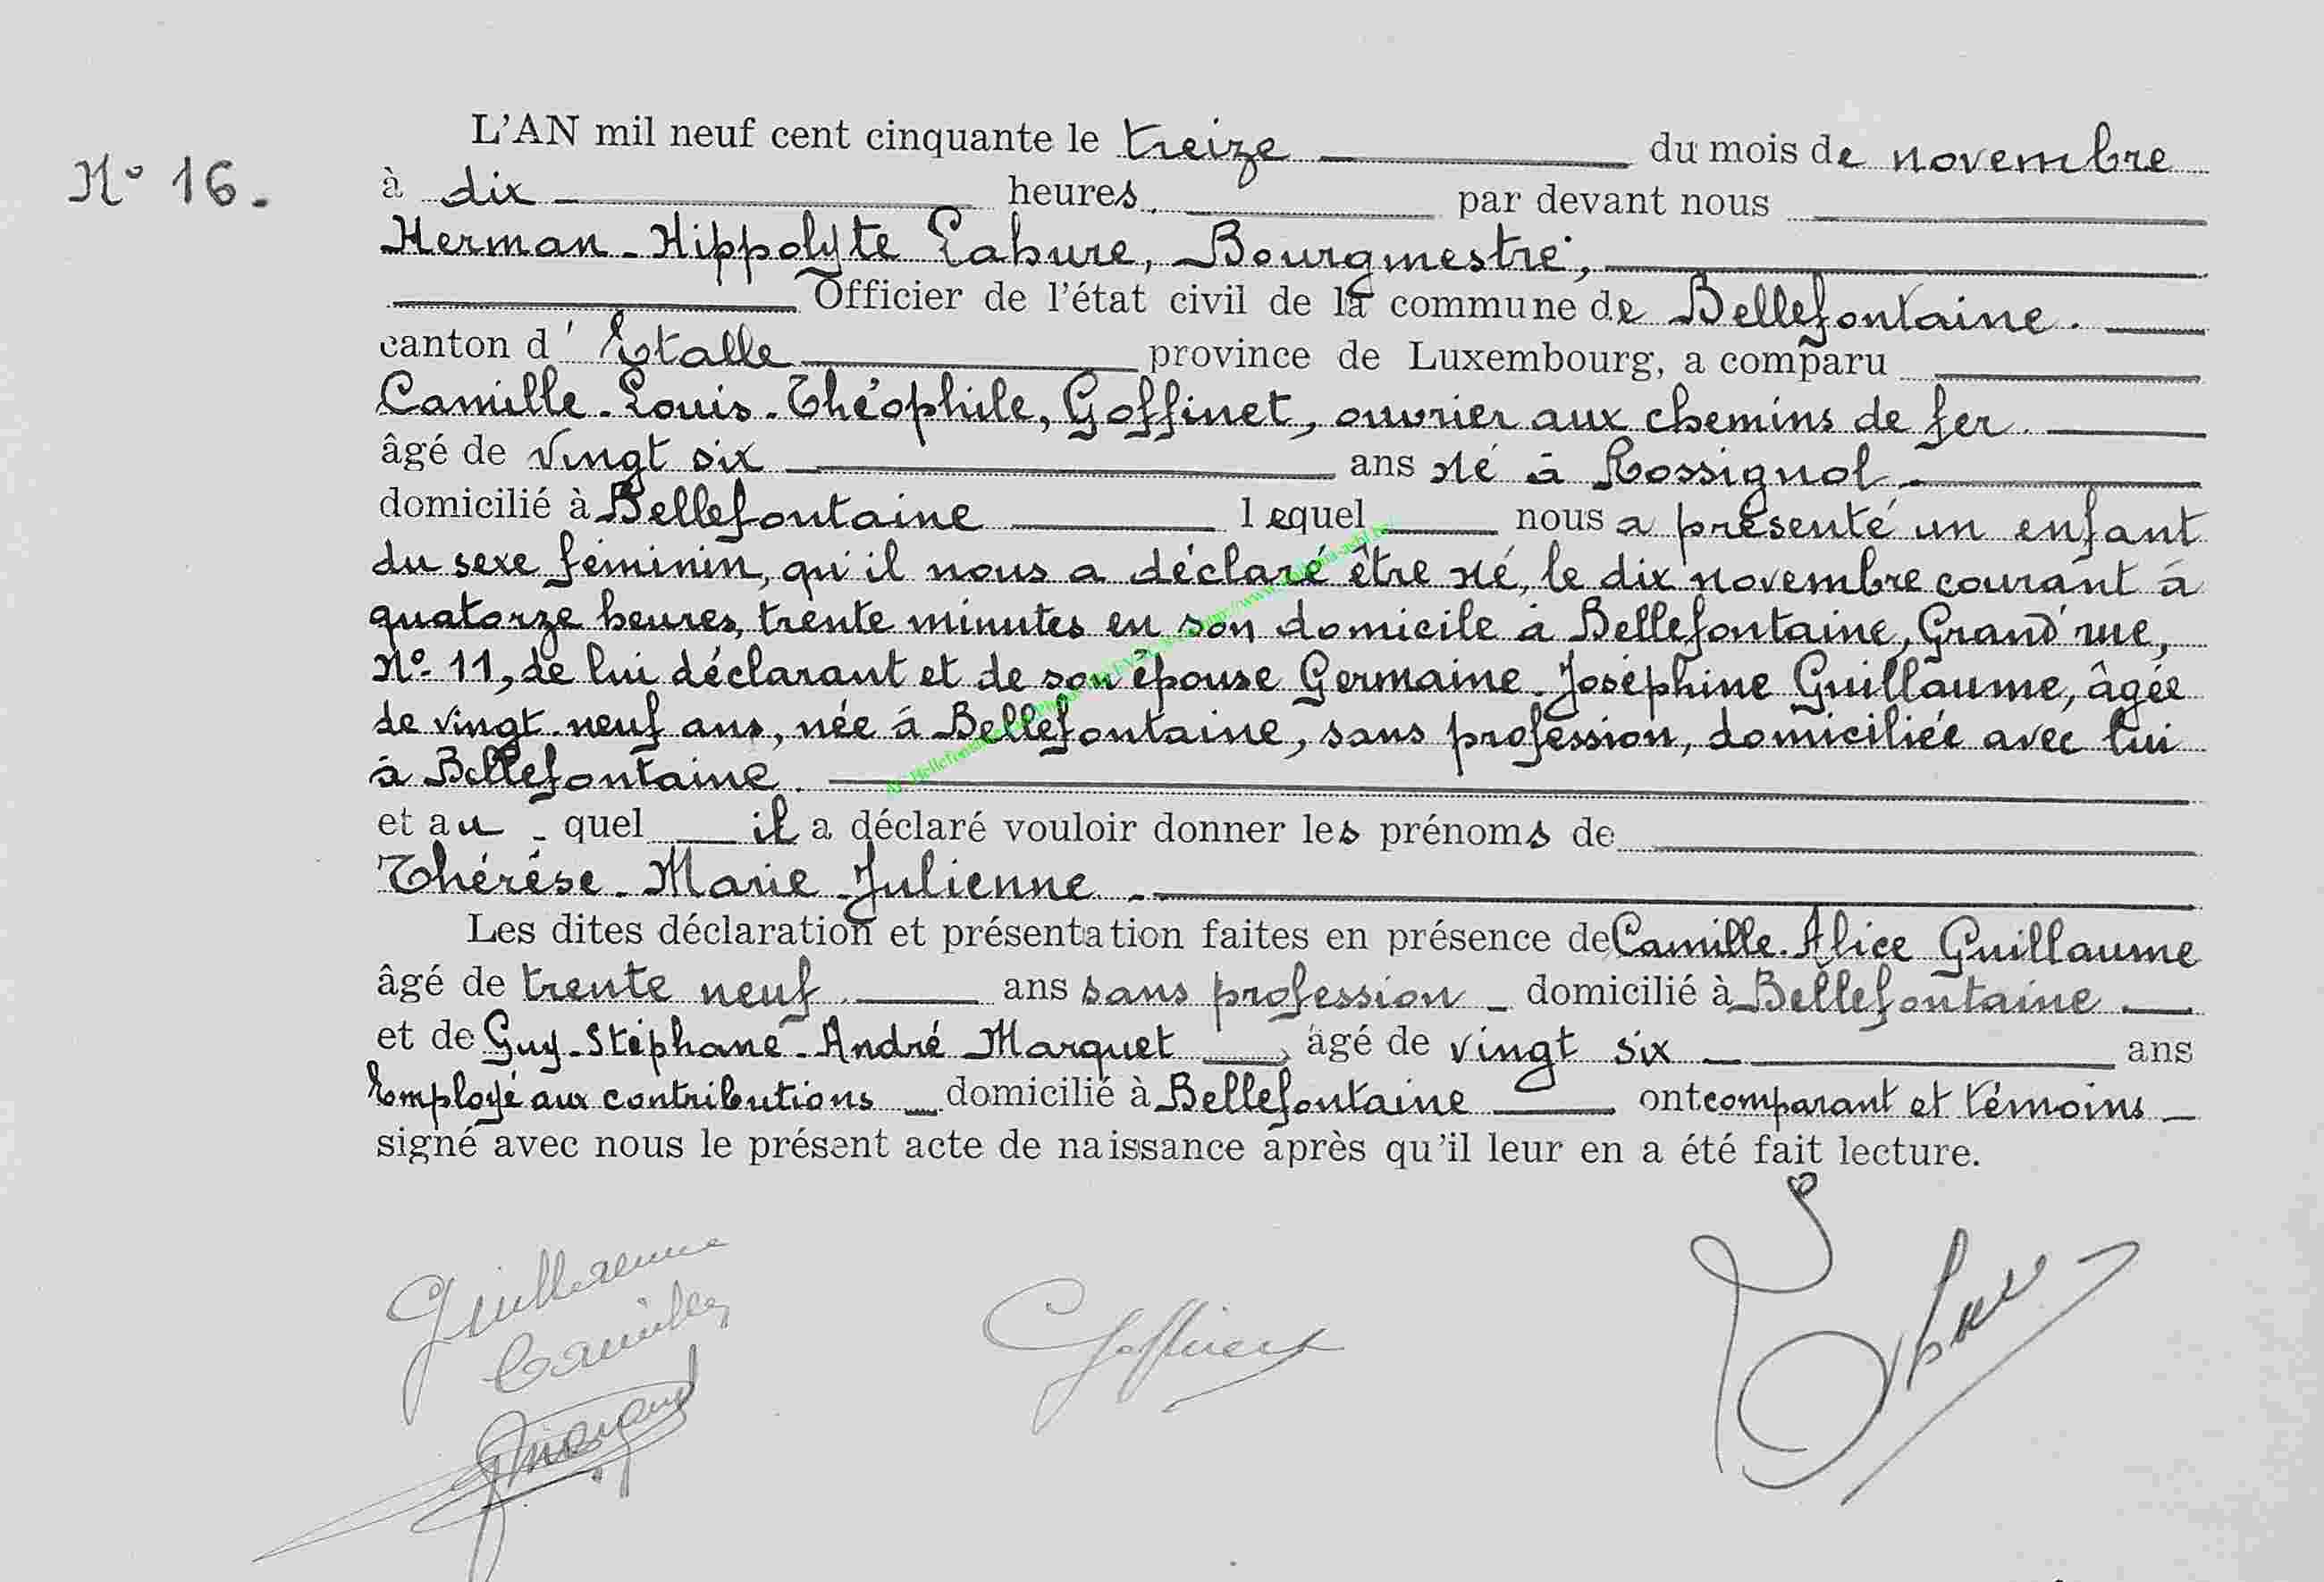 L'AN mil neuf cent cinquante le treize du mois de novembre
N° 16.
à dix heures par devant nous
Herman-Hippolyte Lahure, Bourgmestre,
Officier de l'état civil de la commune de Bellefontaine.
canton d'Etalle province de Luxembourg, a comparu
Camille-Louis-Théophile, Goffinet, ouvrier aux chemins de fer.
âgé de vingt six ans né à Rossignol
domicilié à Bellefontaine lequel nous a présenté un enfant
du sexe féminin, qu'il nous a déclaré être né, le dix novembre courant à
quatorze heures, trente minutes en son domicile à Bellefontaine, Grand'rue,
N° 11, de lui déclarant et de son épouse Germaine-Joséphine Guillaume, âgée
de vingt-neuf ans, née à Bellefontaine, sans profession, domiciliée avec lui
à Bellefontaine.
et au quel il a déclaré vouloir donner les prénoms de
Thérèse-Marie-Julienne
Les dites déclaration et présentation faites en présence de Camille-Alice Guillaume
âgé de trente neuf ans sans profession domicilié à Bellefontaine
et de Guy-Stéphane-André Marquet, âgé de vingt six ans
Employé aux contributions domicilié à Bellefontaine ont comparant et témoins
signé avec nous le présent acte de naissance après qu'il leur en a été fait lecture.
Guillaume
Camille
Goffinet